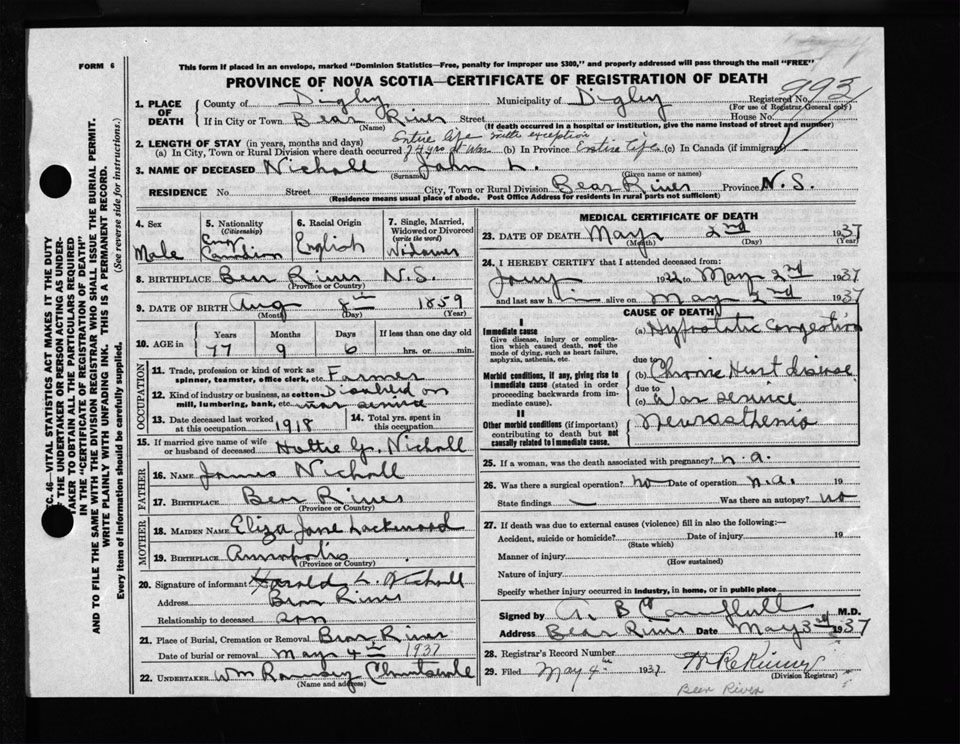 FORM 6
This form if placed in an envelope, marked "Dominion Statistics—Free, penalty for improper use $300," and properly addressed will pass through the mail "FREE"
PROVINCE OF NOVA SCOTIA—CERTIFICATE OF REGISTRATION OF DEATH
Registered No. 993
(For use of Registrar General only)
1. PLACE OF DEATH County of Digby Municipality of Digby
If in City or Town Bear River Street House No.
(Name) (If death occurred in a hospital or institution, give the name instead of street and number)
Entire life with exception
2. LENGTH OF STAY (in years, months and days)
(a) In City, Town or Rural Division where death occurred yrs at War (b) In Province Entire life (c) In Canada (if immigrant)
3. NAME OF DECEASED Nicholl John L.
(Surname) (Given name or names)
RESIDENCE No. Street City, Town or Rural Division Bear River Province N.S.
(Residence means usual place of abode. Post Office Address for residents in rural parts not sufficient)
4. Sex Male
5. Nationality (Citizenship) Canadian
6. Racial Origin English
7. Single, Married, Widowed or Divorced (write the word) Widower
8. BIRTHPLACE Bear River N.S.
(Province or Country)
9. DATE OF BIRTH Aug 8th 1859
(Month) (Day) (Year)
10. AGE in Years Months Days If less than one day old
77 9 6 hrs. or min.
OCCUPATION
11. Trade, profession or kind of work as spinner, teamster, office clerk, etc. Farmer
12. Kind of industry or business, as cotton mill, lumbering, bank, etc. Disabled on war service
13. Date deceased last worked at this occupation. 1918
14. Total yrs. spent in this occupation.
15. If married give name of wife or husband of deceased Hattie G. Nicholl
FATHER
16. NAME James Nicholl
17. BIRTHPLACE Bear River
(Province or Country)
MOTHER
18. MAIDEN NAME Eliza Jane Lockwood
19. BIRTHPLACE Annapolis
(Province or Country)
20. Signature of informant Harold L. Nicholl
Address Bear River
Relationship to deceased son
21. Place of Burial, Cremation or Removal Bear River
Date of burial or removal May 4th 1937
22. UNDERTAKER Wm Clementsvale
(Name and address)
MEDICAL CERTIFICATE OF DEATH
23. DATE OF DEATH May 2nd 1937
(Month) (Day) (Year)
24. I HEREBY CERTIFY that I attended deceased from:
1922 to May 2nd 1937
and last saw him alive on May 2nd 1937
CAUSE OF DEATH
I
Immediate cause (a) Hypostatic Congestion
Give disease, injury or complication which caused death, not the mode of dying, such as heart failure, asphyxia, asthenia, etc.
due to
Morbid conditions, if any, giving rise to immediate cause (stated in order proceeding backwards from immediate cause). (b) Chronic Heart disease
due to
(c) War service
II
Other morbid conditions (if important) contributing to death but not causally related to immediate cause. Neurasthenia
25. If a woman, was the death associated with pregnancy? n.a.
26. Was there a surgical operation? no Date of operation n.a. 19
State findings — Was there an autopsy? no
27. If death was due to external causes (violence) fill in also the following:—
Accident, suicide or homicide? Date of injury 19
(State which)
Manner of injury
(How sustained)
Nature of injury
Specify whether injury occurred in industry, in home, or in public place
Signed by A. B. Campbell M.D.
Address Bear River Date May 3rd 1937
28. Registrar's Record Number
29. Filed May 4th 1937
(Division Registrar)
Bear River
SEC. 46—VITAL STATISTICS ACT MAKES IT THE DUTY
OF THE UNDERTAKER OR PERSON ACTING AS UNDER-
TAKER TO OBTAIN ALL THE PARTICULARS REQUIRED
IN THE "CERTIFICATE OF REGISTRATION OF DEATH"
AND TO FILE THE SAME WITH THE DIVISION REGISTRAR WHO SHALL ISSUE THE BURIAL PERMIT.
WRITE PLAINLY WITH UNFADING INK. THIS IS A PERMANENT RECORD.
Every item of information should be carefully supplied. (See reverse side for instructions.)